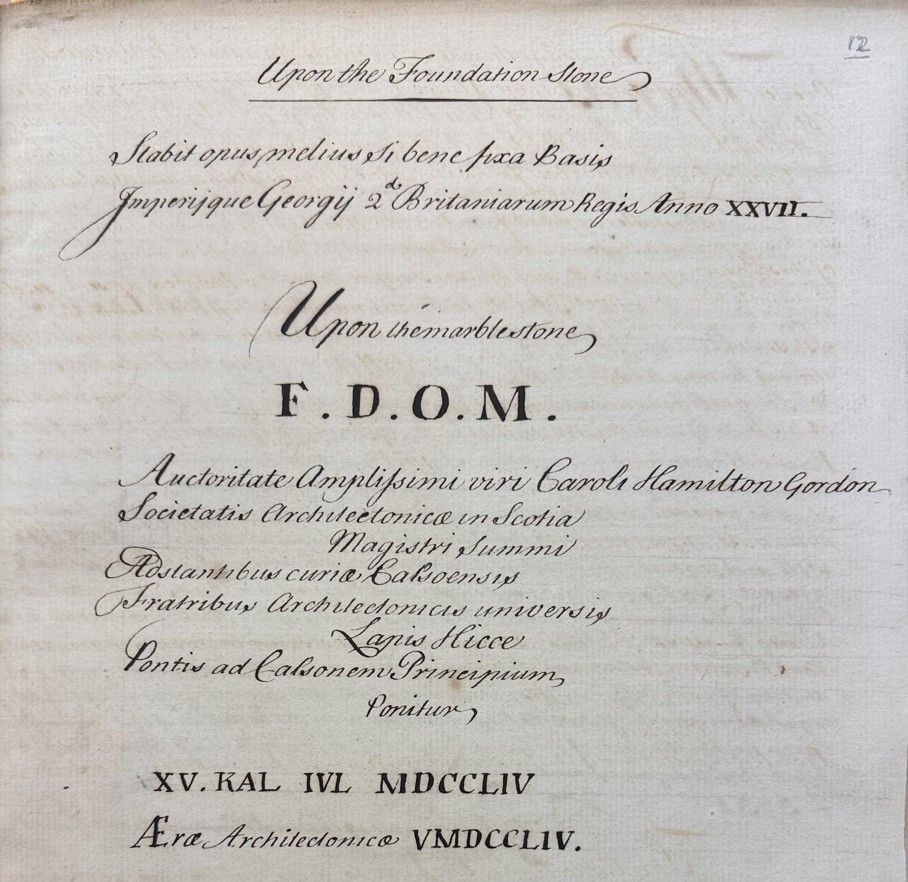 12
Upon the Foundation Stone
Stabit opus melius Si bene fixa Basis
Imperijque Georgij 2d Britaniarum Regis Anno XXVII.
Upon the marble stone
F. D. O. M.
Auctoritate Amplissimi viri Caroli Hamilton Gordon
Societatis Architectonicæ in Scotia
Magistri Summi
Adstantibus curiæ Calsoensis
Fratribus Architectonicis universis
Lapis Hicce
Pontis ad Calsonem Principium
Ponitur
XV. KAL IVL MDCCLIV
Æræ Architectonicæ VMDCCLIV.